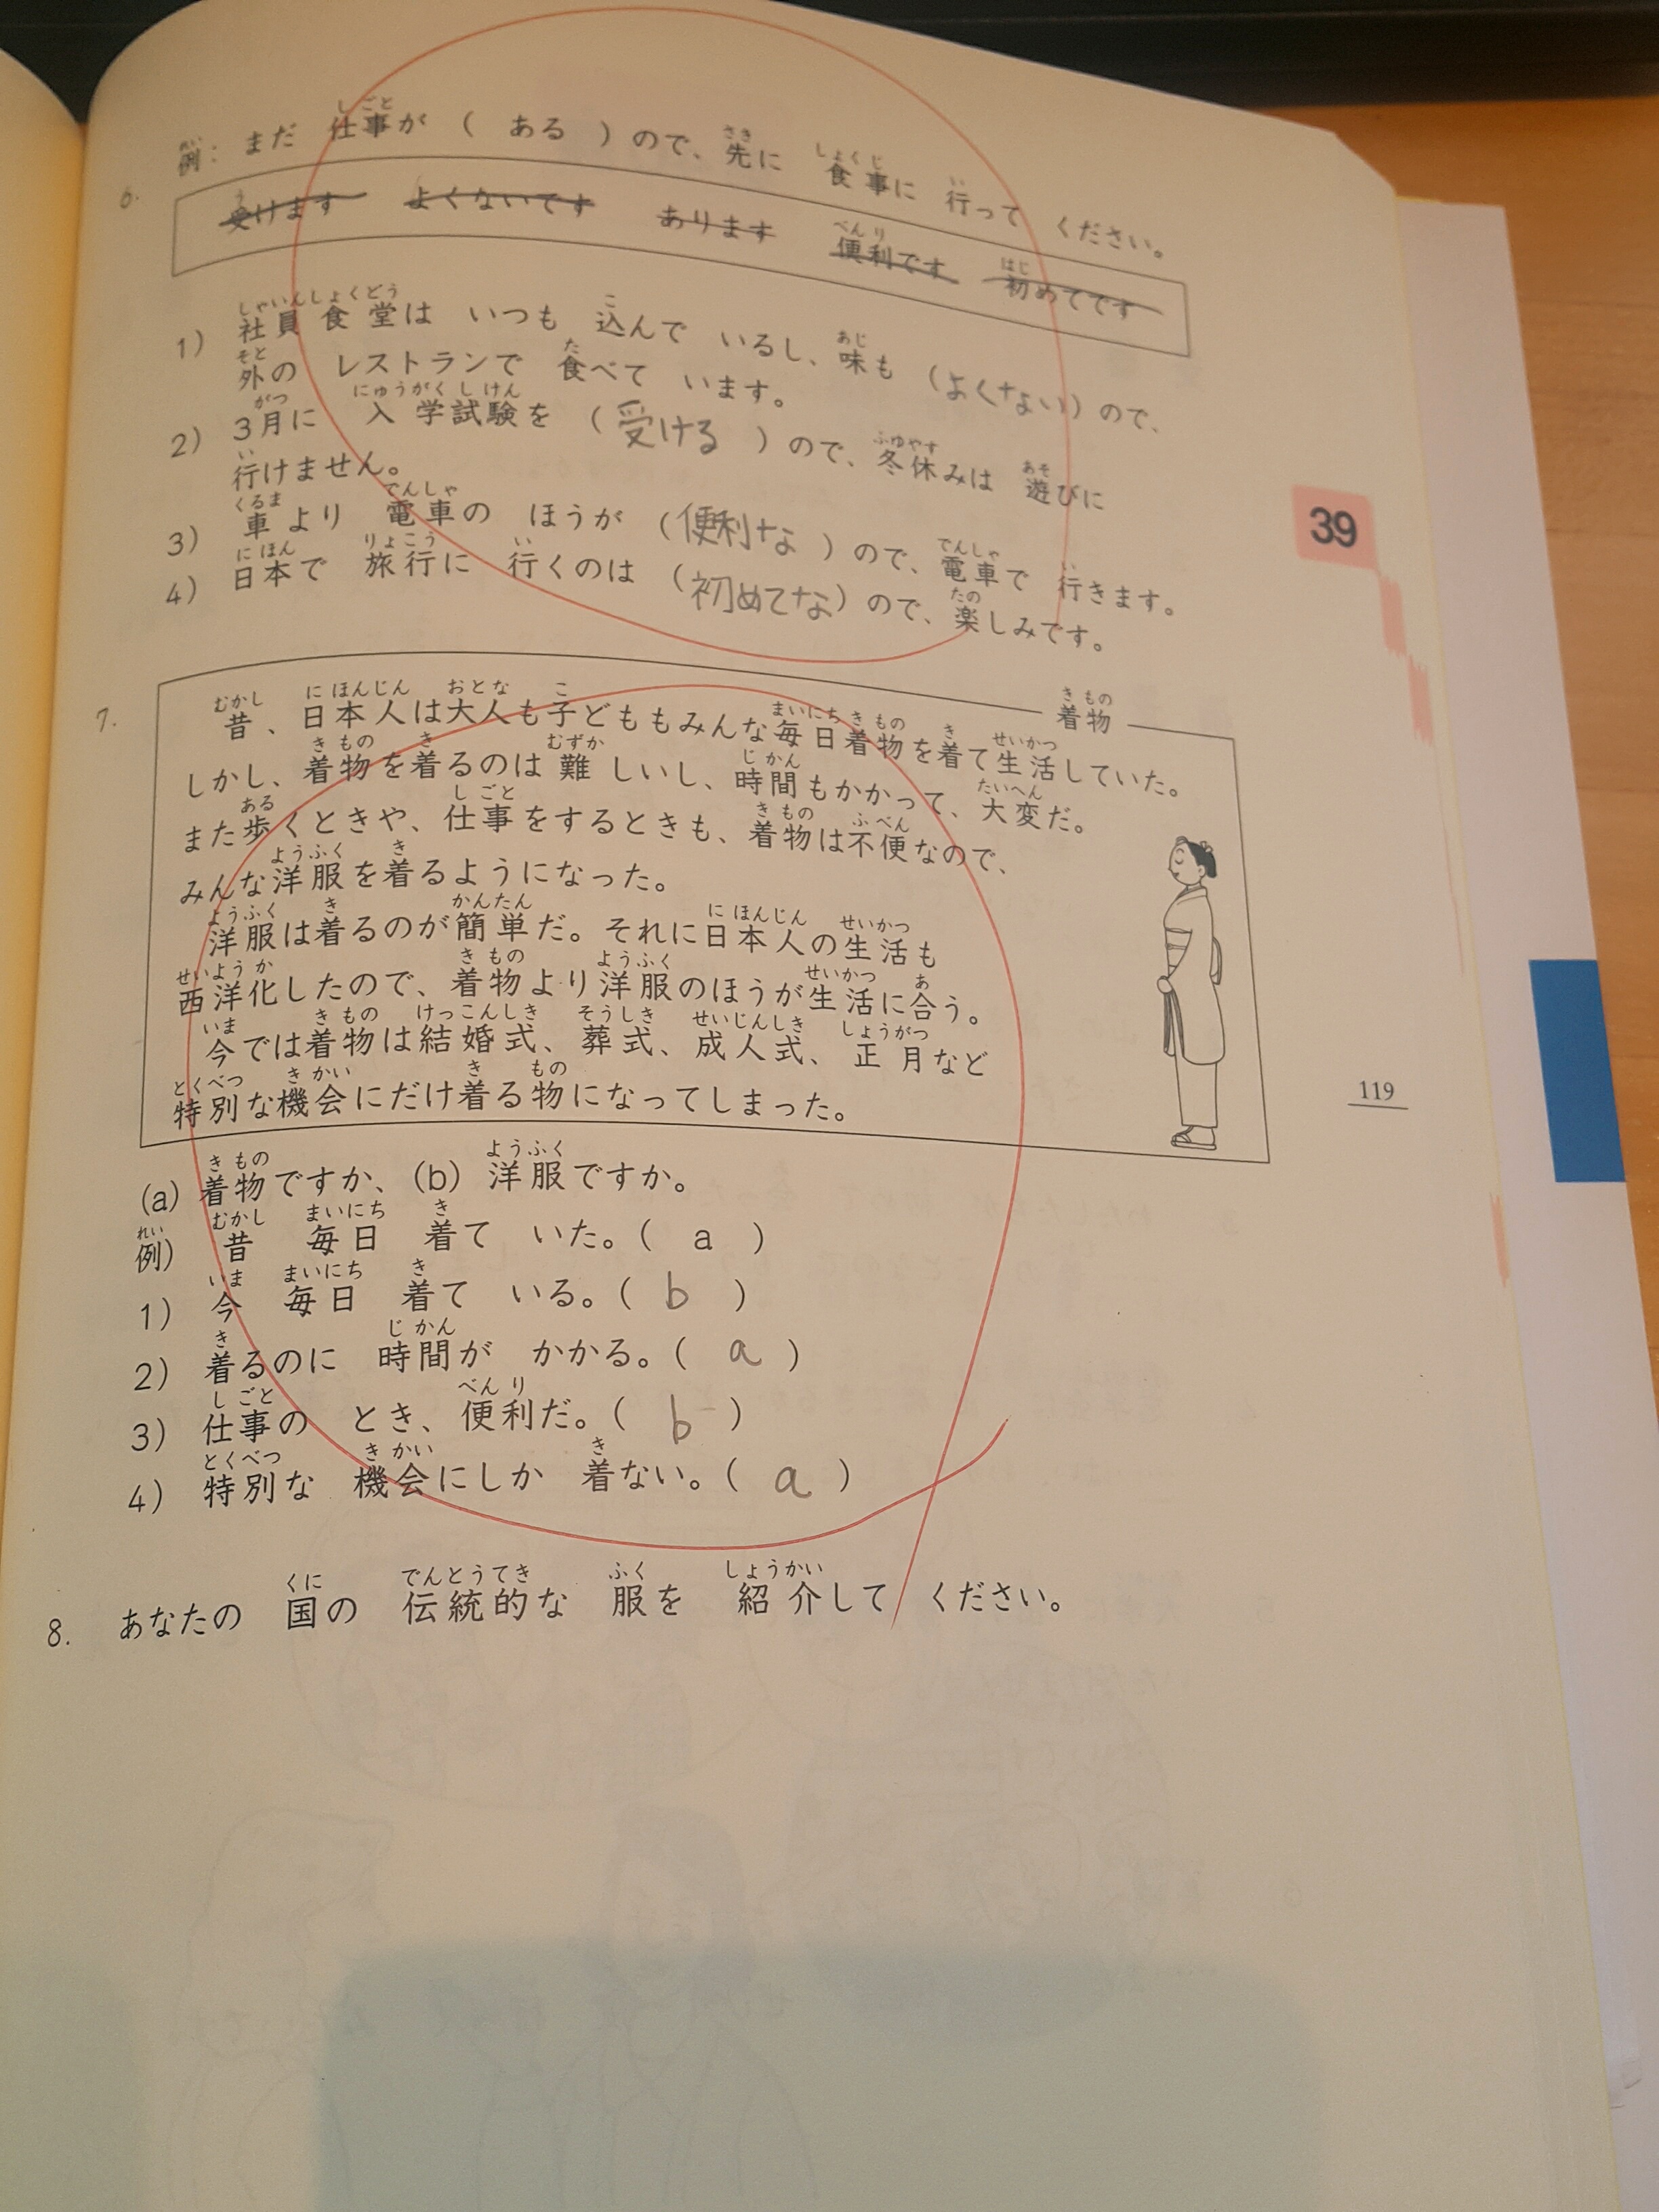 例：まだ 仕事が （ ある ）ので、先に 食事に 行って ください。
6.
受けます よくないです あります 便利です 初めてです
1) 社員食堂は いつも 込んで いるし、味も （よくない）ので、
外の レストランで 食べて います。
2) 3月に 入学試験を （受ける）ので、冬休みは 遊びに
行けません。
3) 車より 電車の ほうが （便利な）ので、電車で 行きます。
4) 日本で 旅行に 行くのは （初めてな）ので、楽しみです。
39
7.
着物
昔、日本人は大人も子どももみんな毎日着物を着て生活していた。
しかし、着物を着るのは難しいし、時間もかかって、大変だ。
また歩くときや、仕事をするときも、着物は不便なので、
みんな洋服を着るようになった。
洋服は着るのが簡単だ。それに日本人の生活も
西洋化したので、着物より洋服のほうが生活に合う。
今では着物は結婚式、葬式、成人式、正月など
特別な機会にだけ着る物になってしまった。
119
(a) 着物ですか、(b) 洋服ですか。
例) 昔 毎日 着て いた。（ a ）
1) 今 毎日 着て いる。（ b ）
2) 着るのに 時間が かかる。（ a ）
3) 仕事の とき、便利だ。（ b ）
4) 特別な 機会にしか 着ない。（ a ）
8. あなたの 国の 伝統的な 服を 紹介して ください。